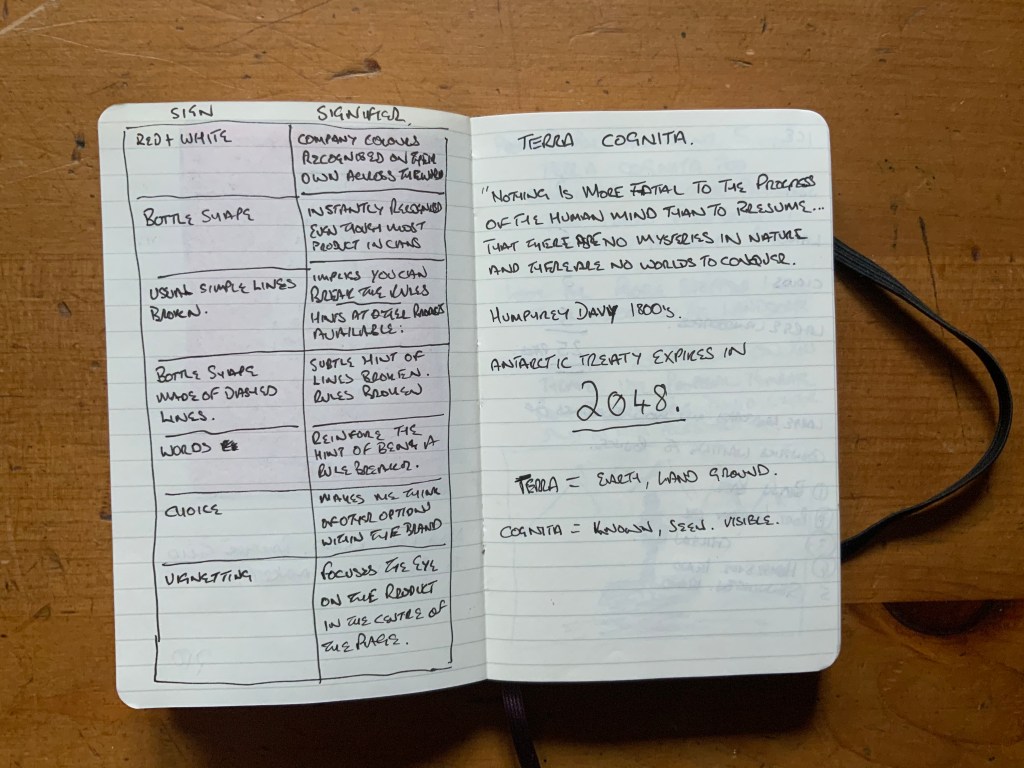 SIGN SIGNIFIER.
RED + WHITE
COMPANY COLOURS
RECOGNISED ON THEIR
OWN ACROSS THE WORLD
BOTTLE SHAPE
INSTANTLY RECOGNISED
EVEN THOUGH MOST
PRODUCT IN CANS
USUAL SIMPLE LINES
BROKEN.
IMPLIES YOU CAN
BREAK THE RULES
HINTS AT OTHER PRODUCTS
AVAILABLE.
BOTTLE SHAPE
MADE OF DASHED
LINES.
SUBTLE HINT OF
LINES BROKEN.
RULES BROKEN
WORDS
REINFORE THE
HINT OF BEING A
RULE BREAKER.
CHOICE
MAKES ME THINK
OF OTHER OPTIONS
WITHIN THE BRAND
VIGNETTING
FOCUSES THE EYE
ON THE PRODUCT
IN THE CENTRE OF
THE PAGE.
TERRA COGNITA.
"NOTHING IS MORE FATAL TO THE PROGRESS
OF THE HUMAN MIND THAN TO PRESUME...
THAT THERE ARE NO MYSTERIES IN NATURE
AND THERE ARE NO WORLDS TO CONQUER.
HUMPHREY DAVY 1800's.
ANTARCTIC TREATY EXPIRES IN
2048.
TERRA = EARTH, LAND GROUND.
COGNITA = KNOWN, SEEN. VISIBLE.